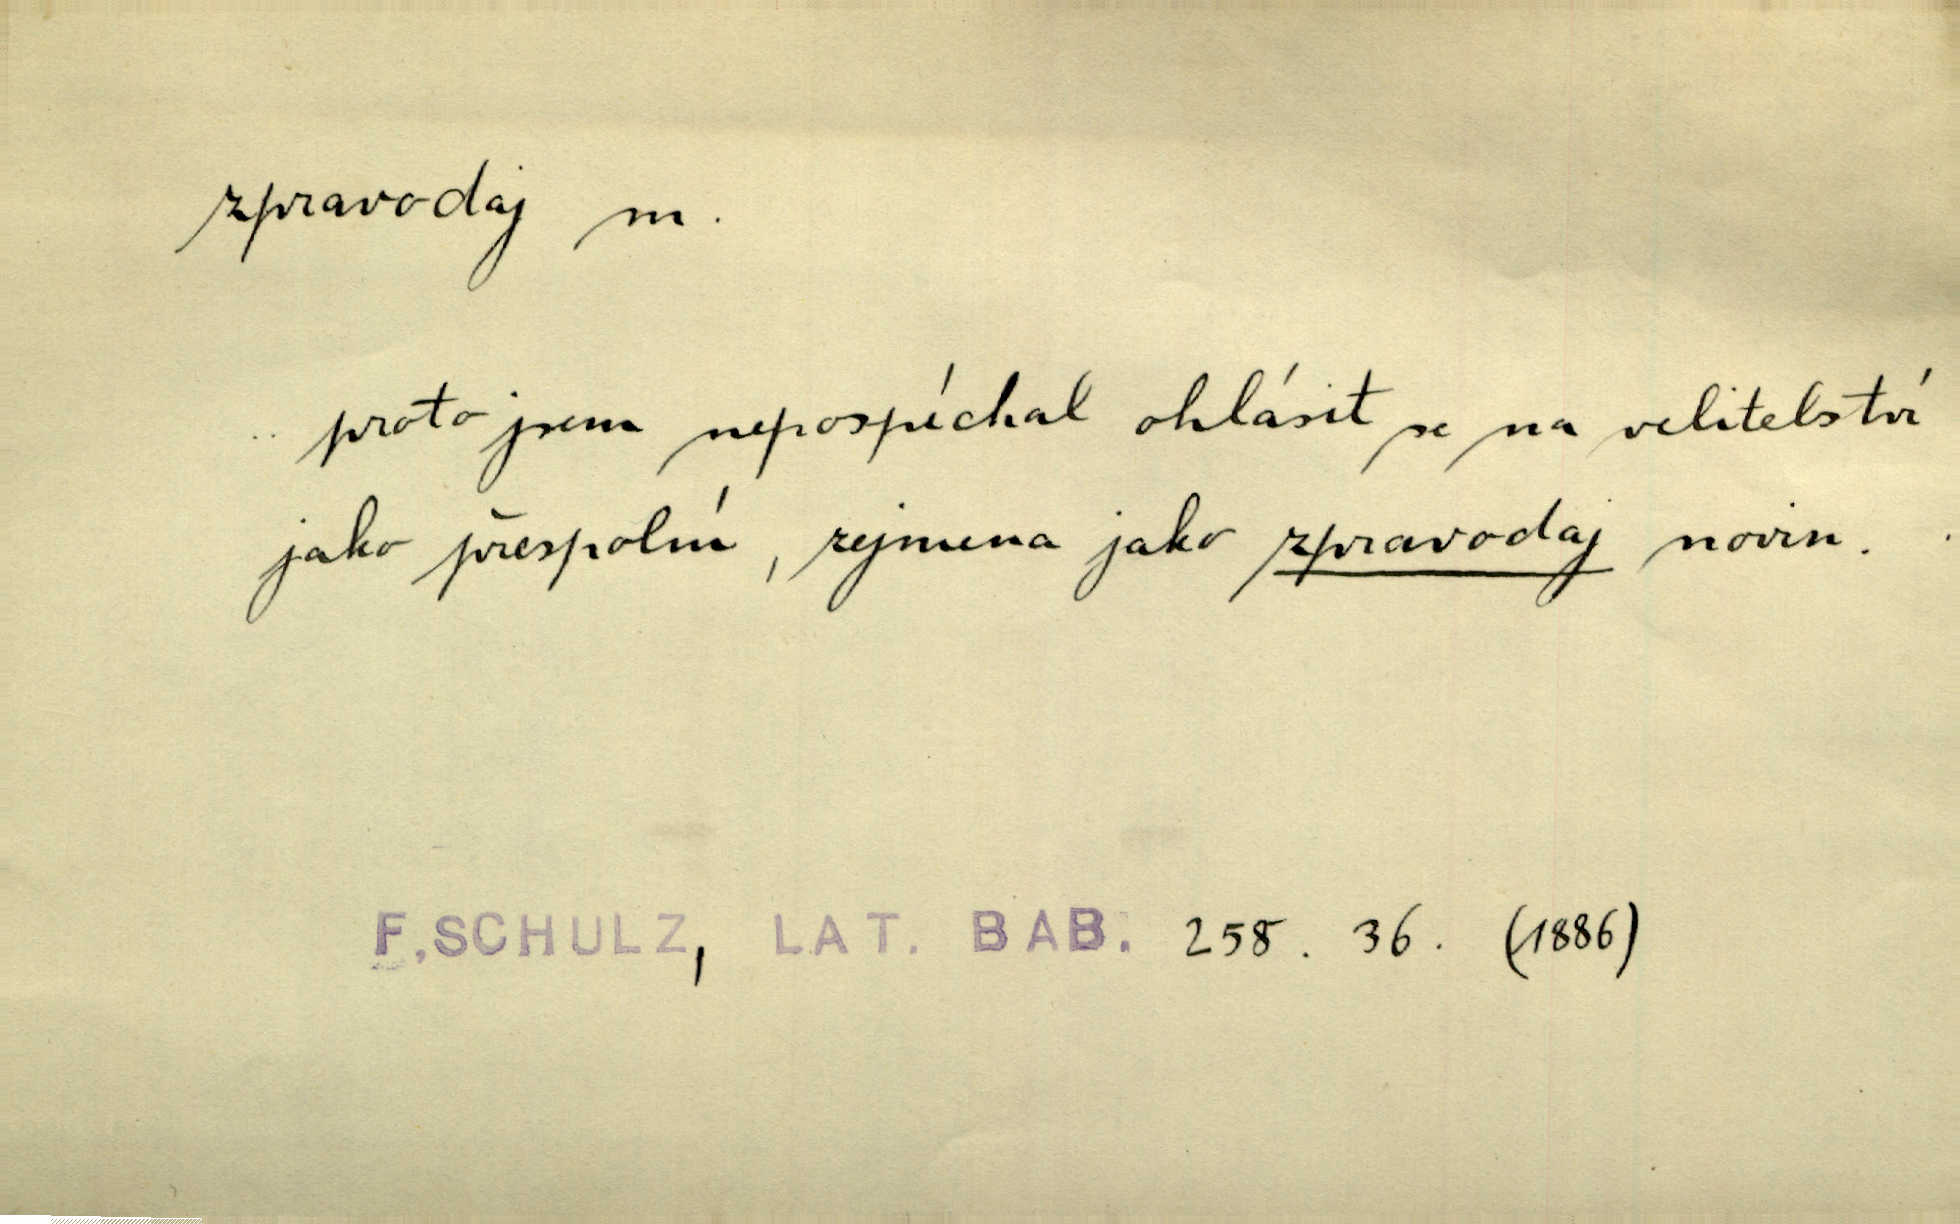 zpravodaj m.
.. proto jsem nepospíchal ohlásit se na velitelství
jako přespolní, zejmena jako zpravodaj novin.
F. SCHULZ, LAT. BAB. 258. 36. (1886)